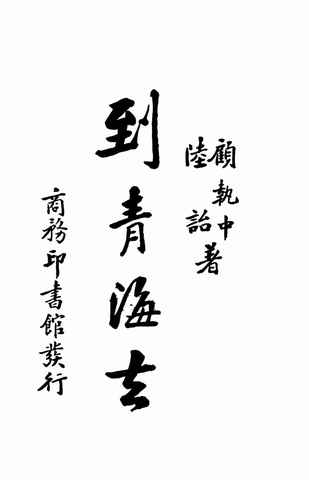 顧執中
陸詒著
到青海去
商務印書館發行